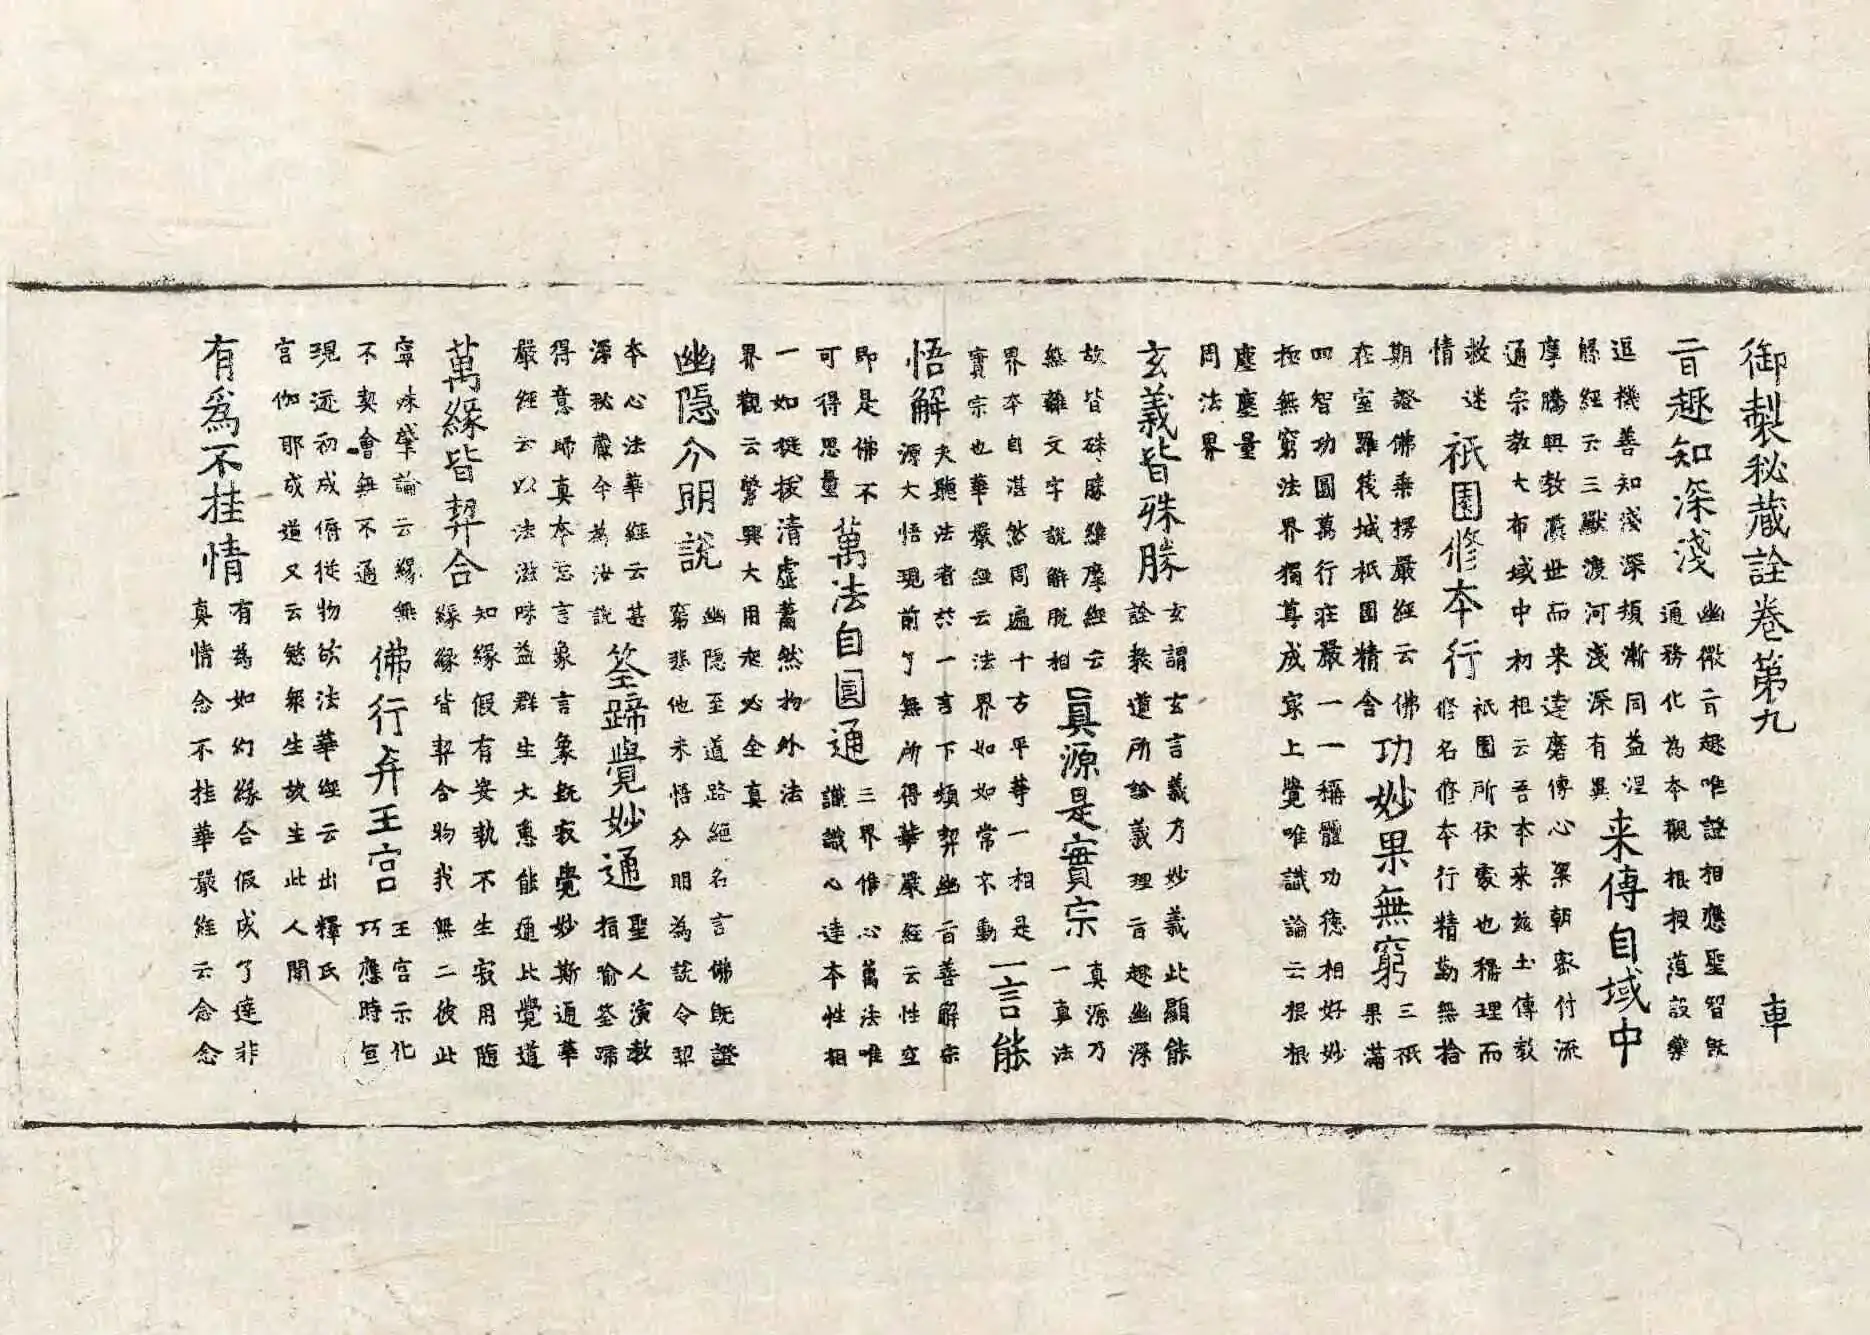 御製秘蔵詮卷第九 車
旨趣知深淺 幽微旨趣唯證相應聖智旣
通務化為本觀根投蕴設藥
逗機善知淺深頓漸同益涅
槃經云三獸渡河淺深有異 来傳自域中
摩騰興教漢世而来達磨傳心梁朝密付流
通宗教大布域中初祖云吾本来兹土傳教
救迷
情 祇園修本行 祇園所依處也稱理而
修名修本行精勤無捨
期證佛乗楞嚴經云佛
在室羅筏城祇園精舎 功妙果無窮 三祇
果滿
四智功圓萬行莊嚴一一稱體功德相好妙
極無窮法界獨尊成寂上覺唯識論云根根
塵塵量
周法界
玄義皆殊勝 玄謂玄言義乃妙義此顯能
詮教道所詮義理旨趣幽深
故皆殊勝維摩經云
無離文字說解脫相 眞源是實宗 真源乃
一真法
界本自湛然周遍十方平等一相是
實宗也華嚴經云法界如如常不動 一言能
悟解 夫聽法者於一言下頓契幽旨善解宗
源大悟現前了無所得華嚴經云性空
即是佛不
可得思量 萬法自圓通 三界惟心萬法唯
識識心達本性相
一如挺拔清虚蕭然物外法
界觀云繁興大用起必全真
幽隠介明說 幽隠至道路絕名言佛旣證
窮悲他未悟分明為說令契
本心法華經云甚
深秘藏今為汝說 筌蹄覺妙通 聖人演教
指喻筌蹄
得意歸真本忘言象言象旣寂覺妙斯通華
嚴經云以法滋味益群生大惠能通此覺道
萬緣皆契合 知緣假有妄執不生寂用随
緣緣皆契合物我無二彼此
寧殊肇論云緣無
不契會無不通 佛行弃王宮 王宮示化
巧應時宜
現迹初成俯従物欲法華經云出釋氏
宮伽耶成道又云愍衆生故生此人間
有爲不挂情 有為如幻緣合假成了達非
真情念不挂華嚴經云念念